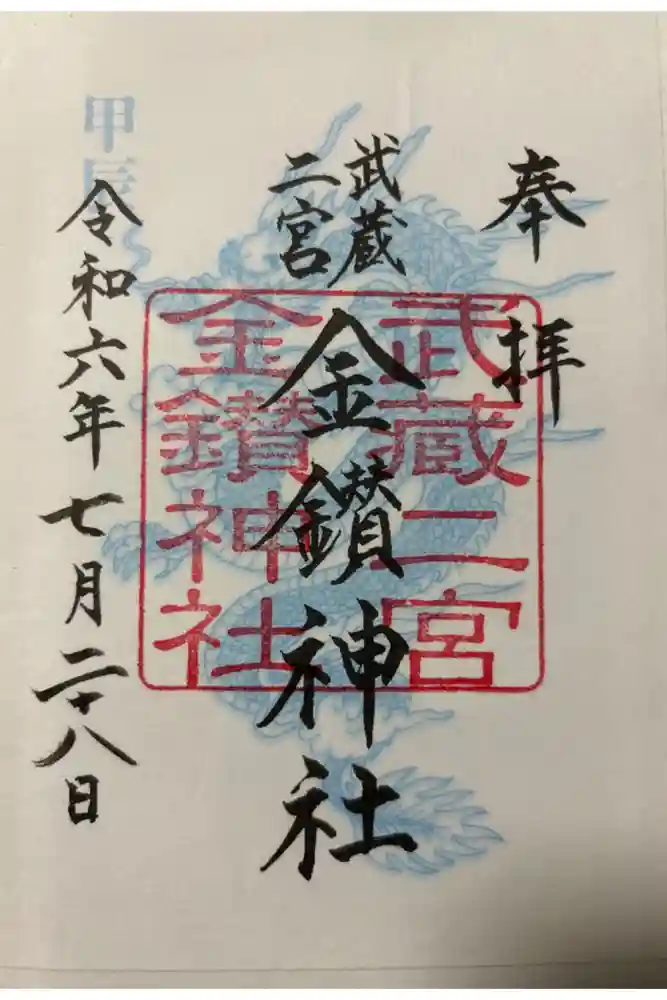 奉拝
武蔵
二宮
金鑚神社
武蔵二宮
金鑚神社
甲辰
令和六年七月二十八日